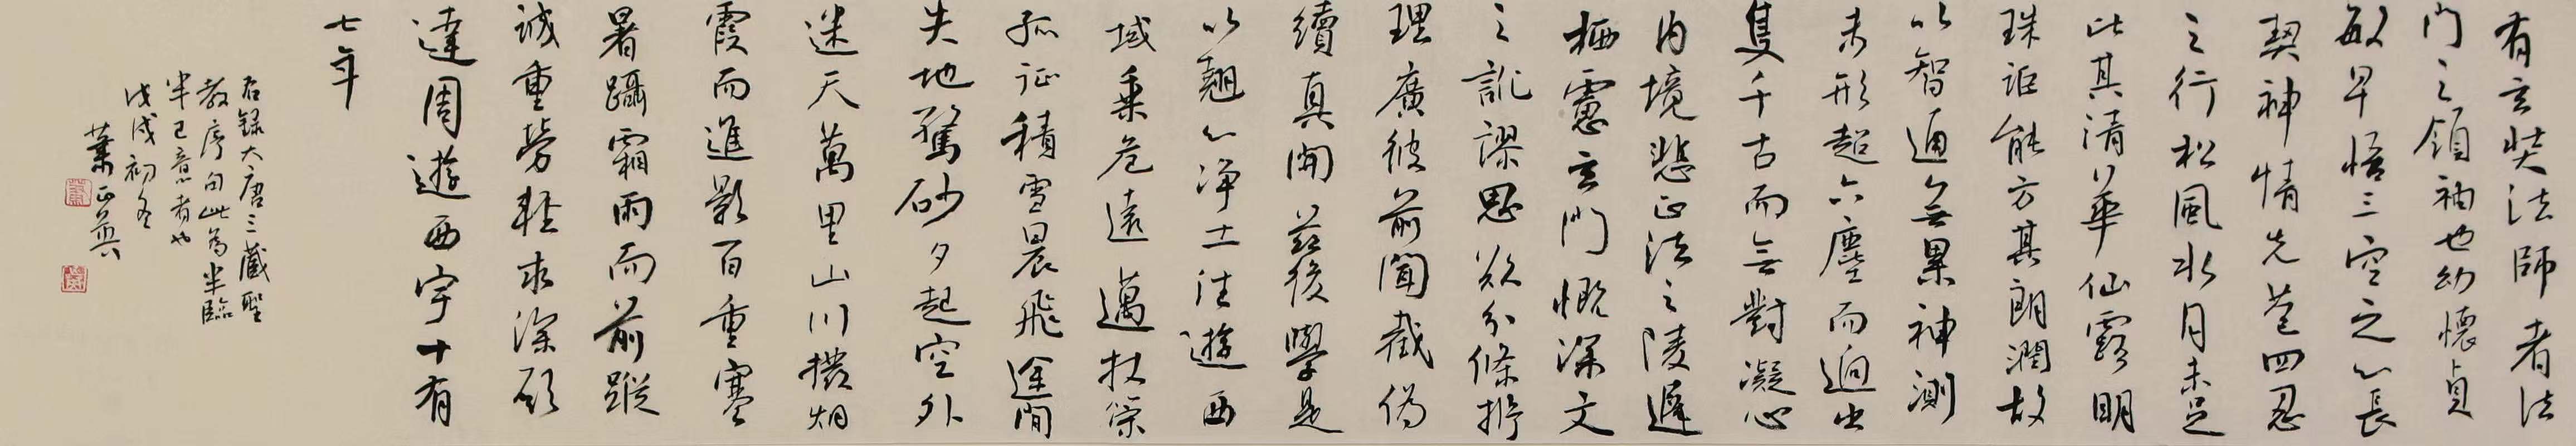 有玄奘法師者法
門之領袖也幼懷貞
敏早悟三空之心長
契神情先苞四忍
之行松風水月未足
比其清華仙露明
珠詎能方其朗潤故
以智通無累神測
未形超六塵而迥出
隻千古而無對凝心
內境悲正法之陵遲
栖慮玄門慨深文
之訛謬思欲分條析
理廣彼前聞截偽
續真開茲後學是
以翹心淨土往遊西
域乘危遠邁杖策
孤征積雪晨飛途間
失地驚砂夕起空外
迷天萬里山川撥烟
霞而進影百重寒
暑躡霜雨而前蹤
誠重勞輕求深願
達周遊西宇十有
七年
右錄大唐三藏聖
教序句此為半臨
半己意者也
戊戌初冬